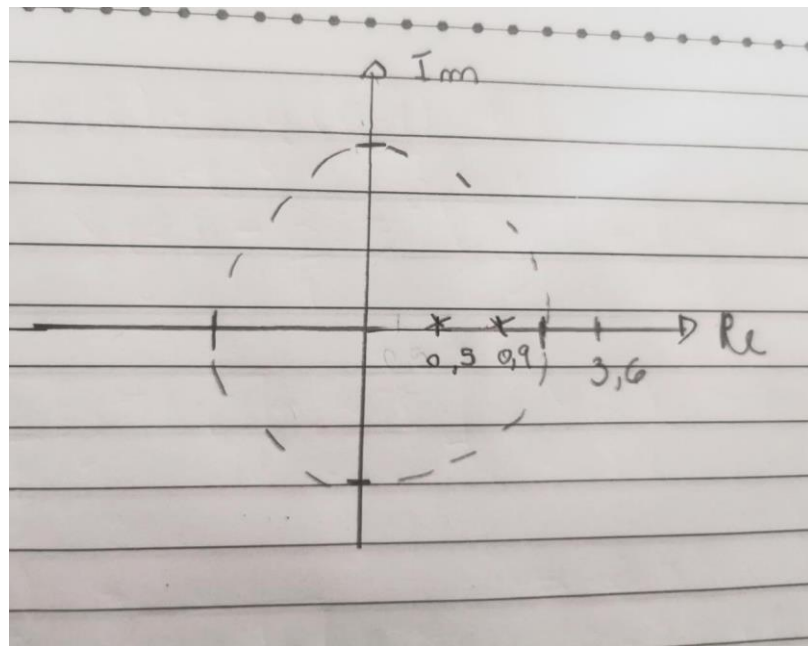 Im
Re
0,5 0,9 3,6